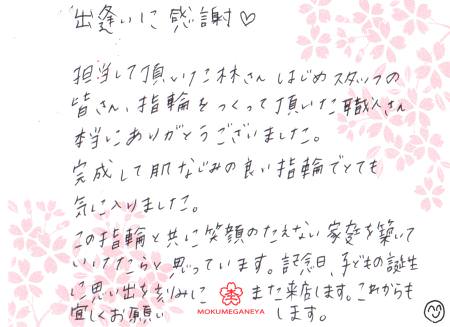 出逢いに感謝♡
担当して頂いた林さんはじめスタッフの
皆さん、指輪をつくって頂いた職人さん
本当にありがとうございました。
完成して肌なじみの良い指輪でとても
気に入りました。
この指輪と共に笑顔のたえない家庭を築いて
いけたらと思っています。記念日、子どもの誕生
に思い出を刻みに また来店します。これからも
宜しくお願い します。
MOKUMEGANEYA